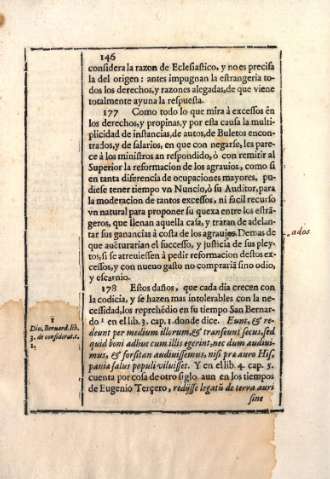 146
considera la razon de Eclesiastico, y no es precisa
la del origen: antes impugnan la estrangeria to
dos los derechos, y razones alegadas, de que viene
totalmente ayuna la respuesta.
177 Como todo lo que mira à excessos en
los derechos, y propinas, y por esta causa la multi-
plicidad de instancias, de autos, de Buletos encon-
trados, y de salarios, en que con negarse, les pare-
ce à los ministros an respondido, ò con remitir al
Superior la reformacion de los agrauios, como si
en tanta diferencia de ocupaciones mayores, pu-
diese tener tiempo vn Nuncio, ò su Auditor, para
la moderacion de tantos excessos, ni facil recurso
vn natural para proponer su quexa entre los estrã-
geros, que llenan aquella casa, y tratan de adelan-
tar sus ganancias à costa de los agrauios. Demas de
ados
que auẽturarian el successo, y justicia de sus pley-
tos, si se atreuiessen à pedir reformacion destos exc-
essos, y con nueuo gasto no comprariã sino odio,
y escarnio.
178 Estos daños, que cada dia crecen con
la codicia, y se hazen mas intolerables con la ne-
cessidad, los reprehẽdio en su tiempo San Bernar-
do 1 en el lib. 3. cap. 1. donde dice. Eunt, & re-
1
Diu. Bernard. lib.
3. de considerat. c.
1.
deunt per medium illorum, & transeunt secus, sed
quid boni adhuc cum illis egerint, nec dum audiui-
mus, & forsitan audiuissemus, nisi præ auro His
paniæ salus populi viluisset. Y en el lib. 4. cap. 5.
cuenta por cosa de otro siglo, aun en los tiempos
de Eugenio Terçero, redijsse legatũ de terra auri
sine